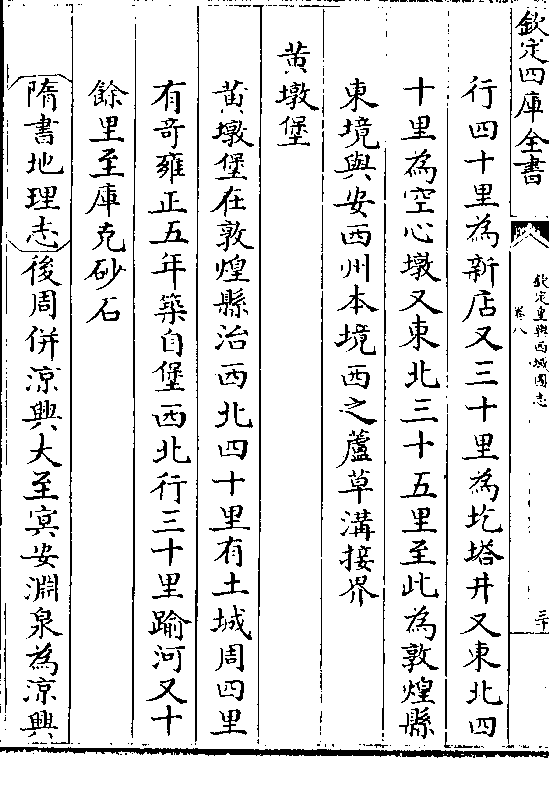 欽定四庫全書
欽定皇輿西域圖志
卷八
三十
行四十里為新店又三十里為圪塔井又東北四
十里為空心墩又東北三十五里至此為敦煌縣
東境與安西州本境西之蘆草溝接界
黃墩堡
黃墩堡在敦煌縣治西北四十里有土城周四里
有奇雍正五年築自堡西北行三十里踰河又十
餘里至庫克砂石
隋書地理志後周併涼興大至㝠安淵泉為涼興